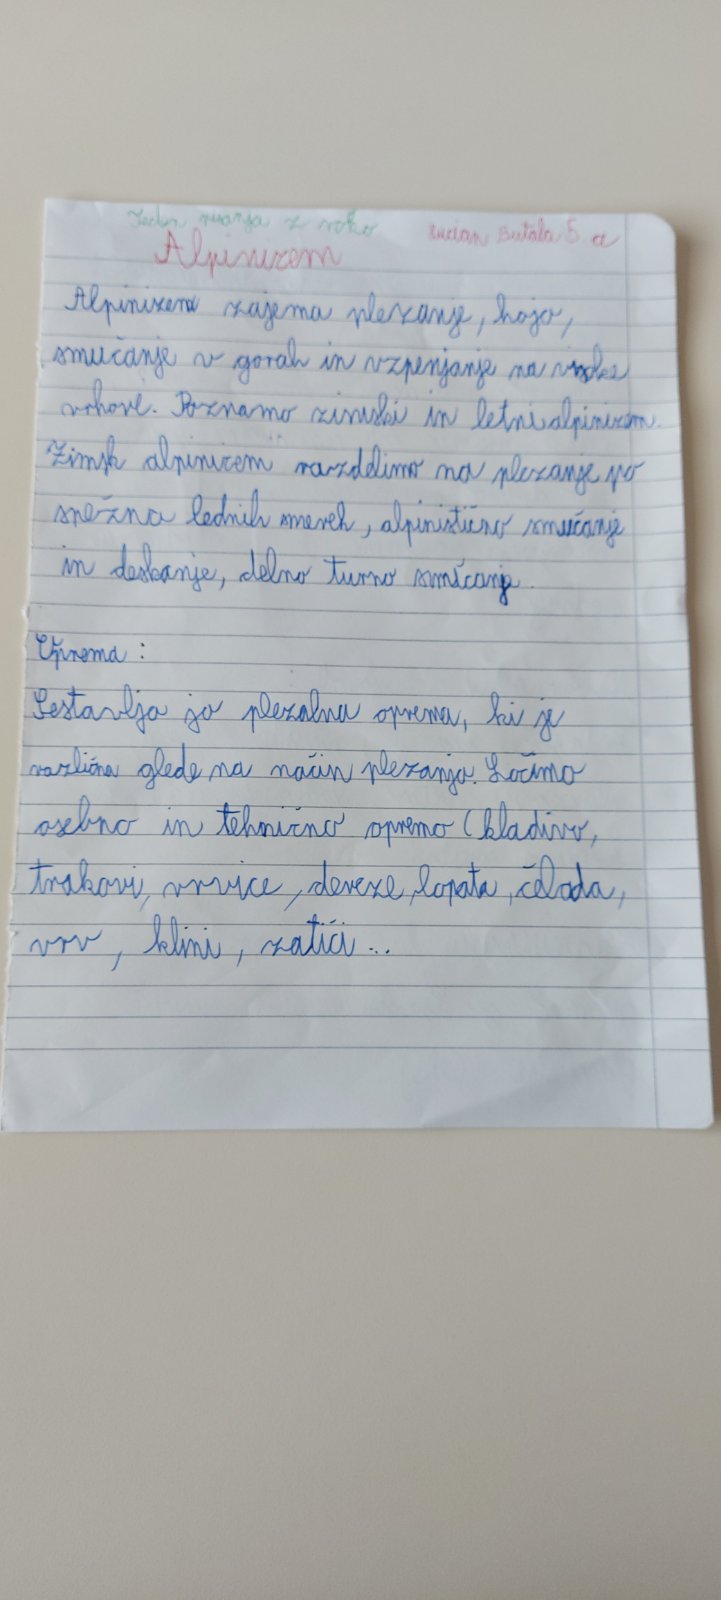 Teden pisanja z roko
Lucian Butala 5. a
Alpinizem
Alpinizem zajema plezanje, hojo,
smučanje v gorah in vzpenjanje na visoke
vrhove. Poznamo zimski in letni alpinizem.
Zimsk alpinizem razdelimo na plezanje po
snežno lednih smereh, alpinistično smučanje
in deskanje, delno turno smučanje.
Oprema:
Sestavlja jo plezalna oprema, ki je
različna glede na način plezanja. Ločimo
osebno in tehnično opremo (kladivo,
trakovi, vrvice, dereze, lopata, čelada,
vrv, klini, zatiči...